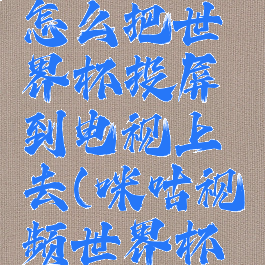 怎么把世
界杯投屏
到电视上
去(咪咕视
频世界杯